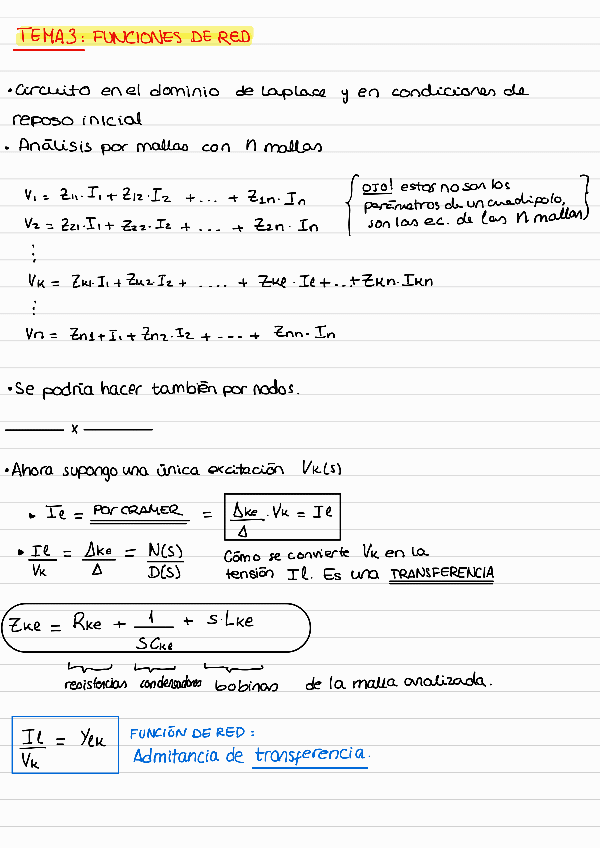 TEMA3: FUNCIONES DE RED
• Circuito en el dominio de Laplace y en condiciones de
reposo inicial
• Análisis por mallas con N mallas
V₁ = Z₁₁·I₁ + Z₁₂·I₂ + ... + Z₁n·In
V₂ = Z₂₁·I₁ + Z₂₂·I₂ + ... + Z₂n·In
⋮
Vk = Zk₁·I₁ + Zk₂·I₂ + .... + Zkℓ·Iℓ + ... + Zkn·Ikn
⋮
Vn = Zn1 + I₁ + Zn₂·I₂ + ---- + Znn·In
OJO! estos no son los
parámetros de un cuadipolo,
son las ec. de las N mallas
• Se podría hacer también por nodos.
——— x ———
• Ahora supongo una única excitación Vk(s)
• Iℓ = POR CRAMER = Δkℓ/Δ · Vk = Iℓ
• Iℓ/Vk = Δkℓ/Δ = N(s)/D(s)
Cómo se convierte Vk en la
tensión Iℓ. Es una TRANSFERENCIA
Zkℓ = Rkℓ + 1/SCkℓ + s·Lkℓ
resistencias condensadores bobinas de la malla analizada.
Iℓ/Vk = Yℓk
FUNCIÓN DE RED:
Admitancia de transferencia.